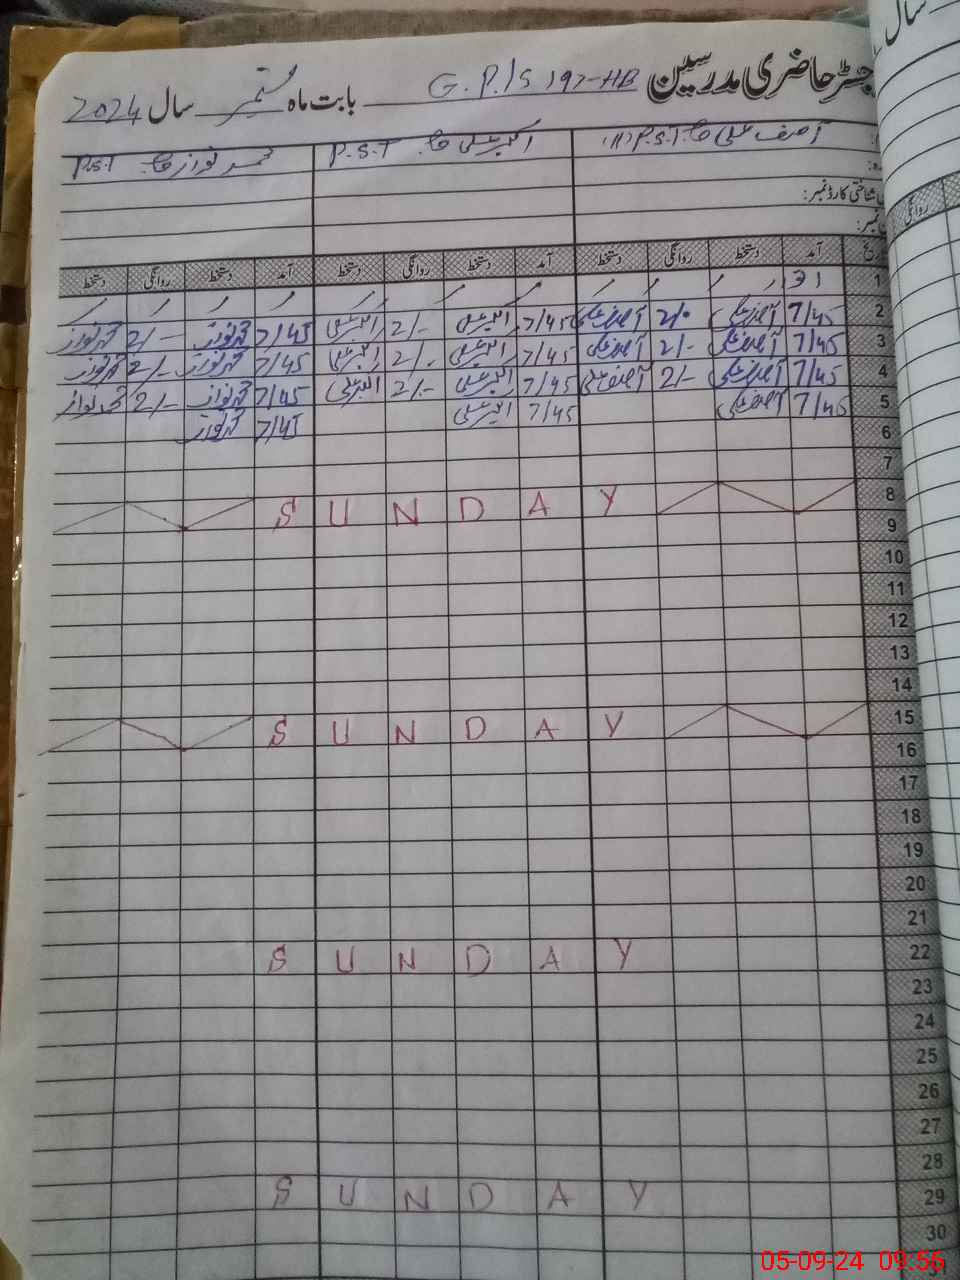 جسٹر حاضری مدرسین G.P/S 197-HB بابت ماہ ستمبر سال 2024
آصف علی P.S.T. اکبر علی P.S.T محمد نواز P.S.T
شناختی کارڈ نمبر:
نمبر:
آمد دستخط روانگی دستخط آمد دستخط روانگی دستخط آمد دستخط روانگی دستخط
1
2 7/45 آصف علی 2/- آصف علی 7/45 اکبر علی 2/- اکبر علی 7/45 محمد نواز 2/- محمد نواز
3 7/45 آصف علی 2/- آصف علی 7/45 اکبر علی 2/- اکبر علی 7/45 محمد نواز 2/- محمد نواز
4 7/45 آصف علی 2/- آصف علی 7/45 اکبر علی 2/- اکبر علی 7/45 محمد نواز 2/- محمد نواز
5 7/45 آصف علی 7/45 اکبر علی 7/45 محمد نواز
6
7
8 SUNDAY
9
10
11
12
13
14
15 SUNDAY
16
17
18
19
20
21
22 SUNDAY
23
24
25
26
27
28
29 SUNDAY
30
سال
روانگی
05-09-24 09:56